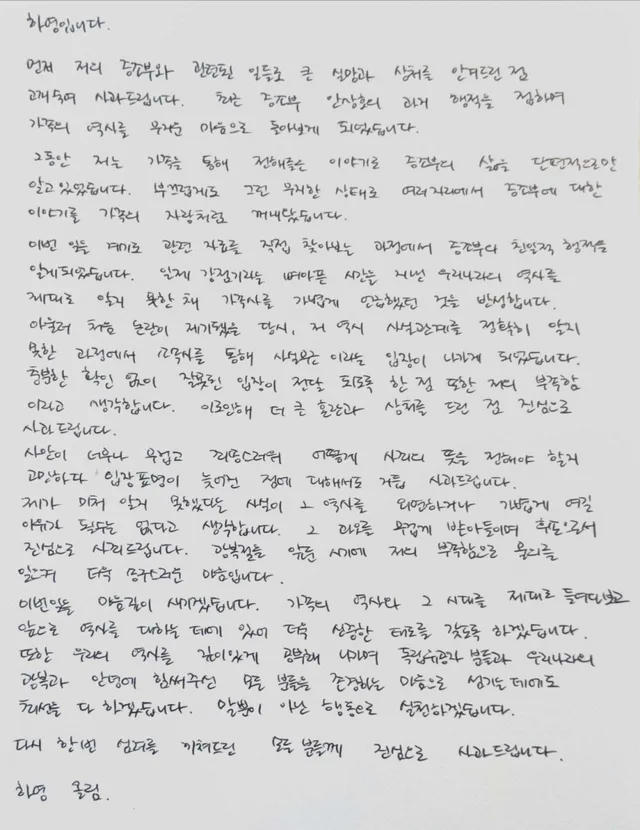 하영입니다.
먼저 저의 증조부와 관련된 일들로 큰 실망과 상처를 안겨드린 점
고개숙여 사과드립니다. 저는 증조부 안상호의 과거 행적을 접하며
가족의 역사를 무거운 마음으로 돌아보게 되었습니다.
그동안 저는 가족을 통해 전해들은 이야기로 증조부의 삶을 단편적으로만
알고있었습니다. 부끄럽게도 그런 무지한 상태로 여러자리에서 증조부에 대한
이야기를 가족의 자랑처럼 꺼내왔습니다.
이번 일을 계기로 관련 자료를 직접 찾아보는 과정에서 증조부의 친일적 행적을
알게되었습니다. 일제 강점기라는 뼈아픈 시간을 지닌 우리나라의 역사를
제대로 알지 못한 채 가족사를 가볍게 언급했던 것을 반성합니다.
아울러 처음 논란이 제기됐을 당시, 저 역시 사실관계를 정확히 알지
못한 과정에서 소속사를 통해 사실무근 이라는 입장이 나가게 되었습니다.
충분한 확인 없이 잘못된 입장이 전달 되도록 한 점 또한 저의 부족함
이라고 생각합니다. 이로인해 더 큰 혼란과 상처를 드린 점 진심으로
사과드립니다.
사안이 너무나 무겁고 죄송스러워 어떻게 사죄의 뜻을 전해야 할지
고민하다 입장표명이 늦어진 점에 대해서도 거듭 사과드립니다.
제가 미처 알지 못했다는 사실이 그 역사를 외면하거나 가볍게 여길
이유가 될수는 없다고 생각합니다. 그 과오를 무겁게 받아들이며 후손으로서
진심으로 사죄드립니다. 광복절을 앞둔 시기에 저의 부족함으로 물의를
일으켜 더욱 송구스러운 마음입니다.
이번일을 마음깊이 새기겠습니다. 가족의 역사와 그 시대를 제대로 들여다보고
앞으로 역사를 대하는 데에 있어 더욱 신중한 태도를 갖도록 하겠습니다.
또한 우리의 역사를 깊이있게 공부해 나가며 독립유공자 분들과 우리나라의
광복과 안녕에 힘써주신 모든 분들을 존경하는 마음으로 섬기는 데에도
최선을 다 하겠습니다. 말뿐이 아닌 행동으로 실천하겠습니다.
다시 한번 심려를 끼쳐드린 모든 분들께 진심으로 사과드립니다.
하영 올림.